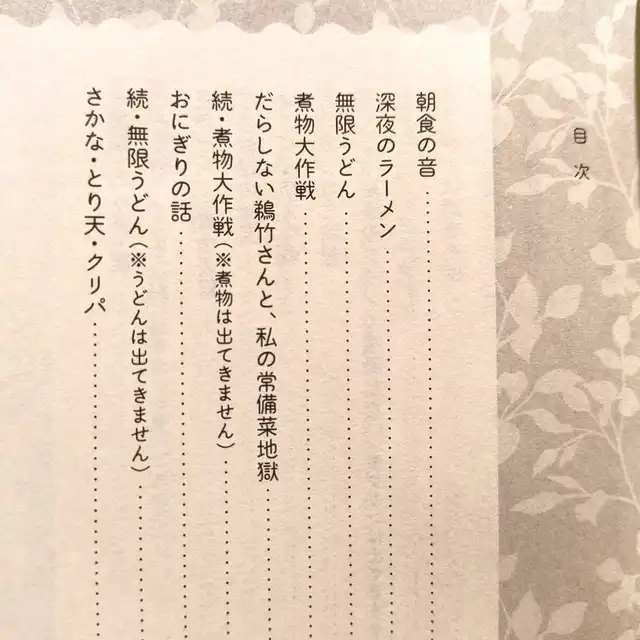 目次
朝食の音
深夜のラーメン
無限うどん
煮物大作戦
だらしない鵜竹さんと、私の常備菜地獄
続・煮物大作戦(※煮物は出てきません)
おにぎりの話
続・無限うどん(※うどんは出てきません)
さかな・とり天・クリパ